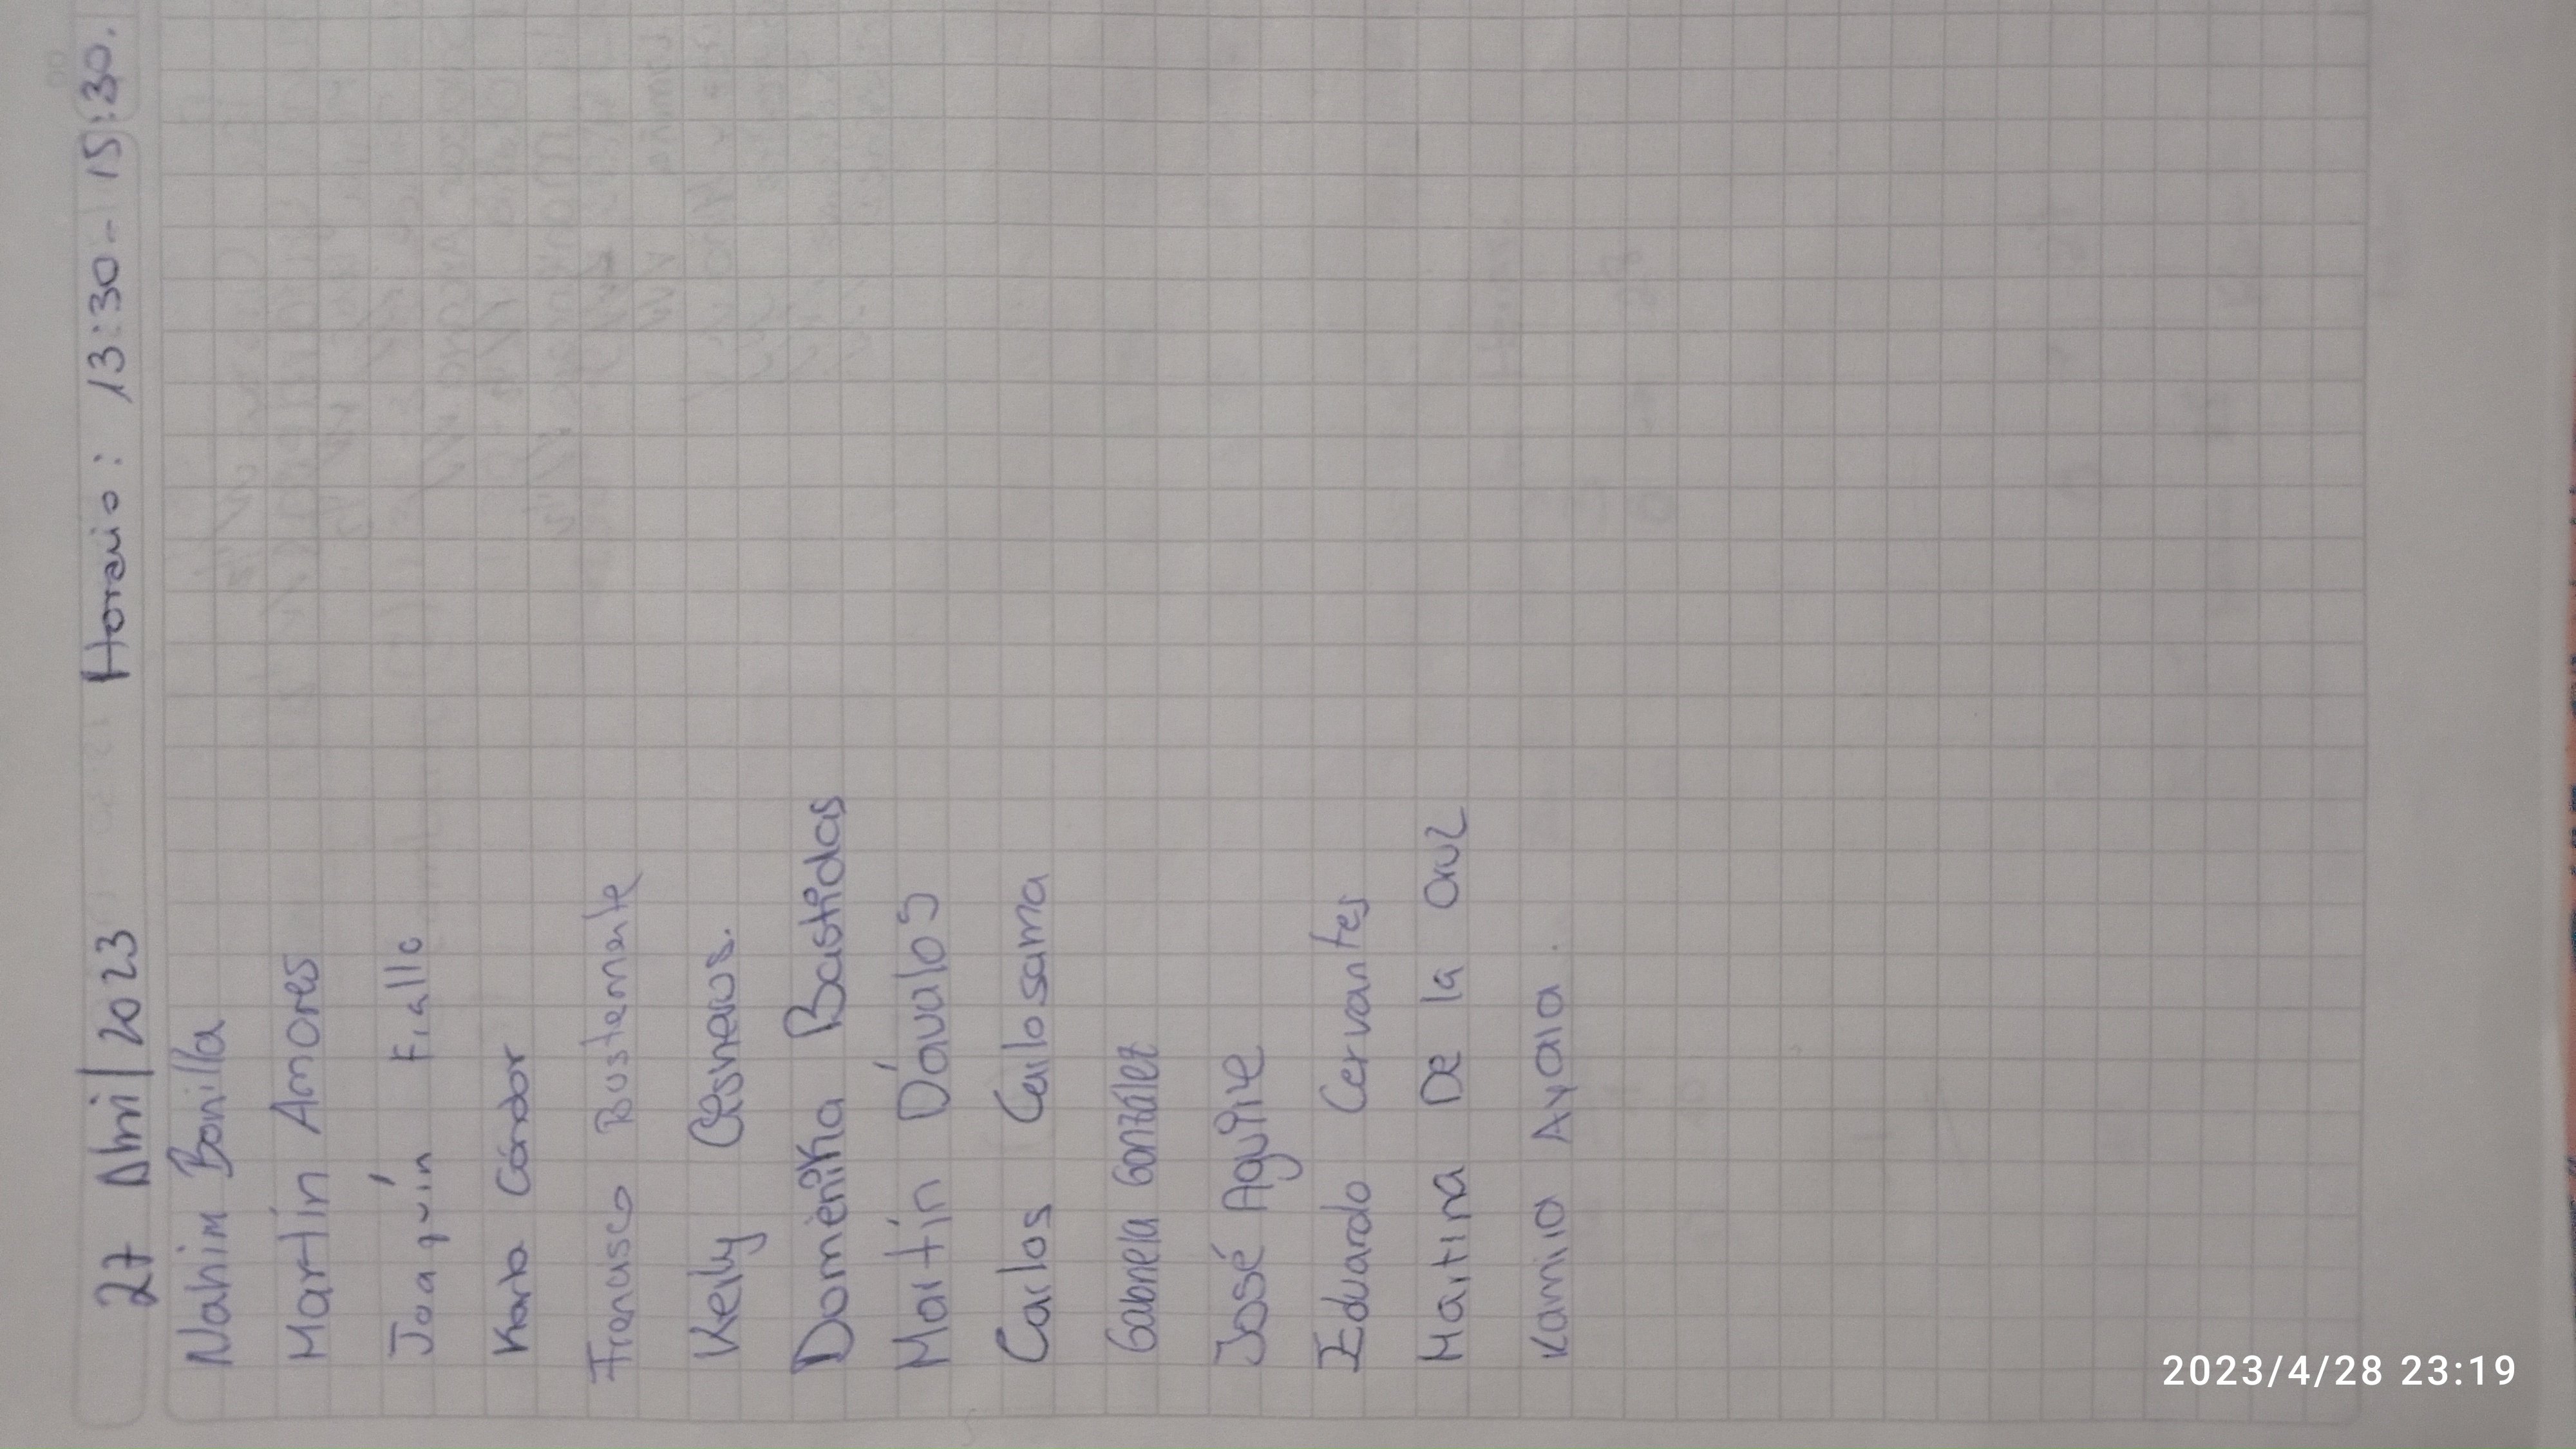 27 Abril 2023 Horario: 13:30 - 15:30.
Nahim Bonilla
Martín Amores
Joaquín Fiallo
Karla Cóndor
Francisco Bustamante
Kelly Cisneros.
Doménika Bastidas
Martín Dávalos
Carlos Carlosama
Gabriela González
José Aguirre
Eduardo Cervantes
Martina De la Cruz
Kamila Ayala.
2023/4/28 23:19